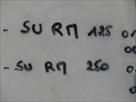 - SU RM 125 0
- SU RM 250 0